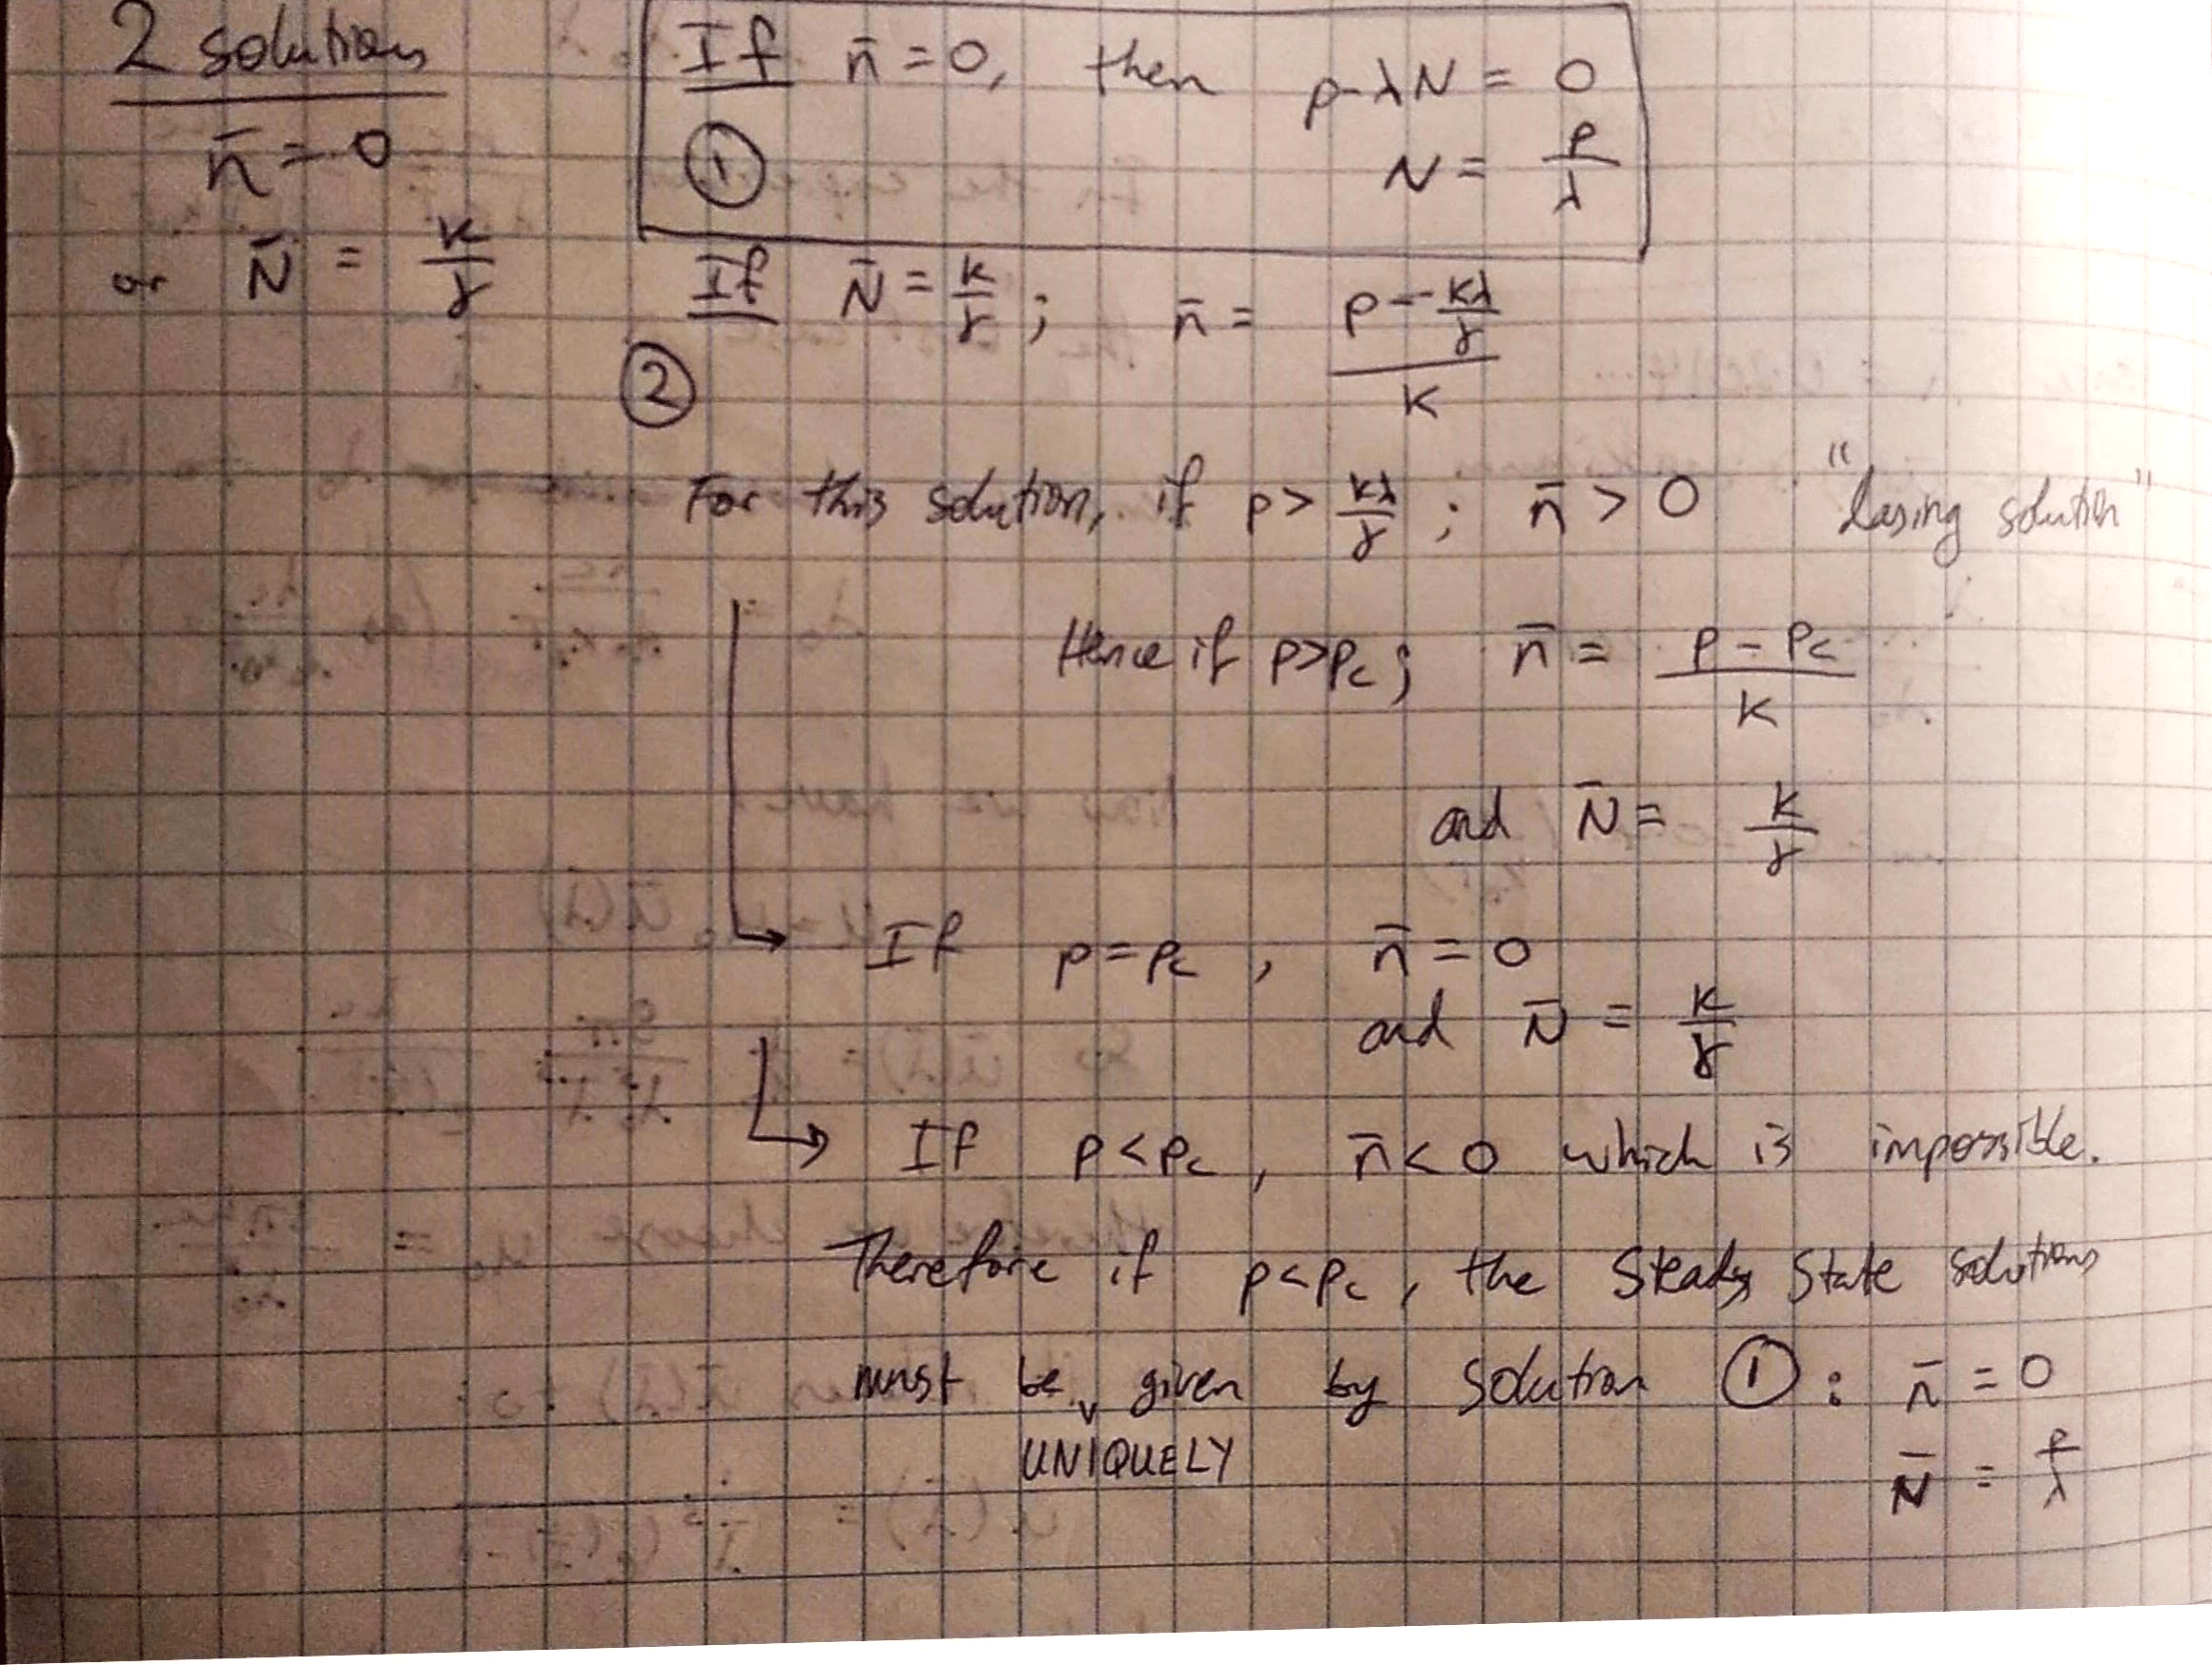 2 solutions
n̄ = 0
or N̄ = κ/γ
If n̄ = 0, then p - λN = 0
① N = p/λ
If N̄ = κ/γ ; n̄ = (p - κλ/γ)/κ
②
For this solution, if p > κλ/γ ; n̄ > 0 "lasing solution"
Hence if p > pc ; n̄ = (p - pc)/κ
and N̄ = κ/γ
↳ If p = pc , n̄ = 0
and N̄ = κ/γ
↳ If p < pc , n̄ < 0 which is impossible.
Therefore if p < pc , the steady state solutions
must be given by solution ① : n̄ = 0
UNIQUELY N̄ = p/λ